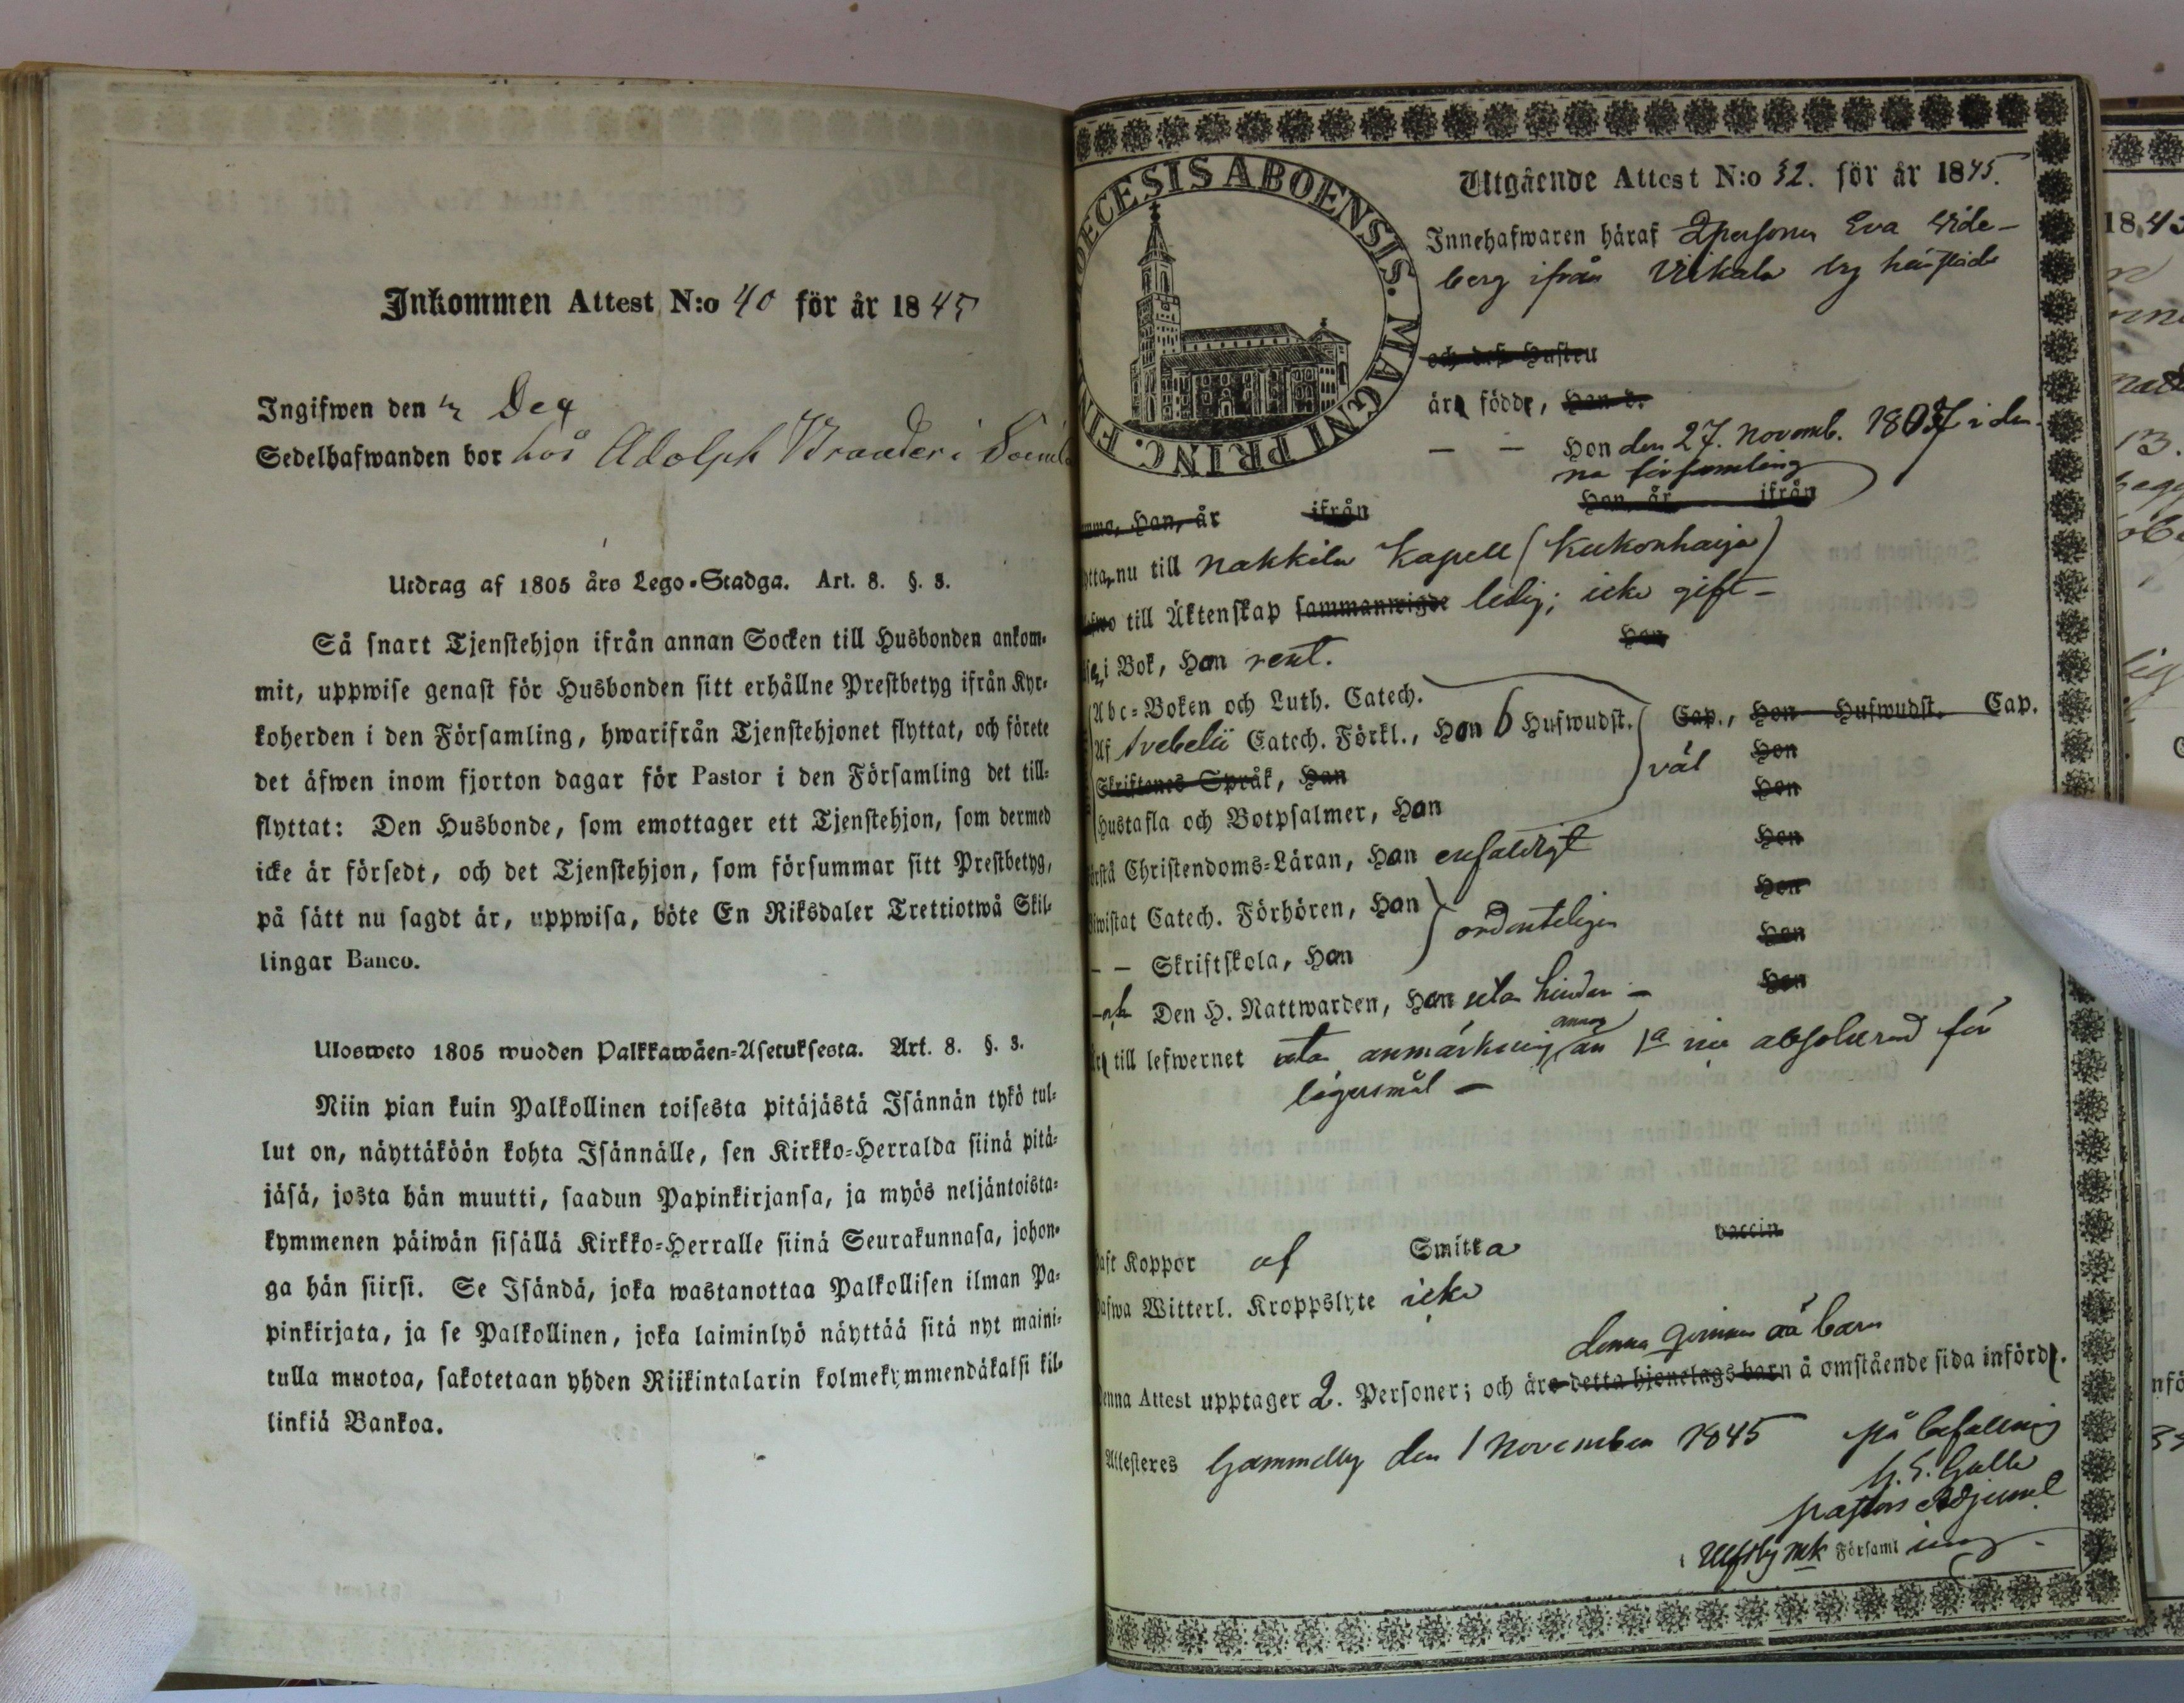 Inkommen Attest N:o 40 för år 1845
Ingifwen den
Sedelhafwanden bor hos Adolph Brander i
Utdrag af 1805 års Lego-Stadga. Art. 8. §. 3.
Så snart Tjenstehjon ifrån annan Socken till Husbonden ankom-
mit, uppwise genast för Husbonden sitt erhållne Prestbetyg ifrån Kyr-
koherden i den Församling, hwarifrån Tjenstehjonet flyttat, och förete
det äfwen inom fjorton dagar för Pastor i den Församling det till-
flyttat: Den Husbonde, som emottager ett Tjenstehjon, som dermed
icke är försedt, och det Tjenstehjon, som försummar sitt Prestbetyg,
på sätt nu sagdt är, uppwisa, böte En Riksdaler Trettiotwå Skil-
lingar Banco.
Ulosweto 1805 wuoden Palkkawäen-Asetuksesta. Art. 8. §. 3.
Niin pian kuin Palkollinen toisesta pitäjästä Isännän tykö tul-
lut on, näyttäköön kohta Isännälle, sen Kirkko-Herralda siinä pitä-
jäsä, josta hän muutti, saadun Papinkirjansa, ja myös neljäntoista-
kymmenen päiwän sisällä Kirkko-Herralle siinä Seurakunnasa, johon-
ga hän siirsi. Se Isändä, joka wastanottaa Palkollisen ilman Pa-
pinkirjata, ja se Palkollinen, joka laiminlyö näyttää sitä nyt maini-
tulla muotoa, sakotetaan yhden Riikintalarin kolmekymmendäkaksi kil-
linkiä Bankoa.
DIOECESIS ABOENSIS. MAGNI PRINC. FIN
Utgående Attest N:o 32. för år 1845.
Innehafwaren häraf Eva Wide-
berg ifrån Viikala by härstäde
och dess Hustru
äro födde, Han d.
— — Hon den 27. Novemb. 1807 i den-
na församling
Han, år ifrån Hon, år ifrån
nu till Nakkila Kapell (Kukonharja)
till Äktenskap sammanwigde ledig; icke gift —
i Bok, Han rent. Hon
Abc-Boken och Luth. Catech.
Af Svebelii Catech. Förkl., Hon 6 Hufwudst. Cap., Hon Hufwudst. Cap.
Skriftenes Språk, Han väl Hon
Hustafla och Botpsalmer, Hon Hon
Christendoms-Läran, Han enfaldigt Hon
Catech. Förhören, Hon ordenteligen Hon
— — Skriftskola, Hon Hon
Den H. Nattwarden, Hon utan hinder — Hon
till lefwernet utan anmärkning annan än 1a absolverad för
lägersmål —
haft Koppor af Smitta vaccin
hafwa Witterl. Kroppslyte icke
denna qvinnas barn
Denna Attest upptager 2. Personer; och äro detta hjonelags barn å omstående sida införde.
Attesteres Gammelby den 1 November 1845 på befallning
Pastors Adjunct
i Ulfsby Församling